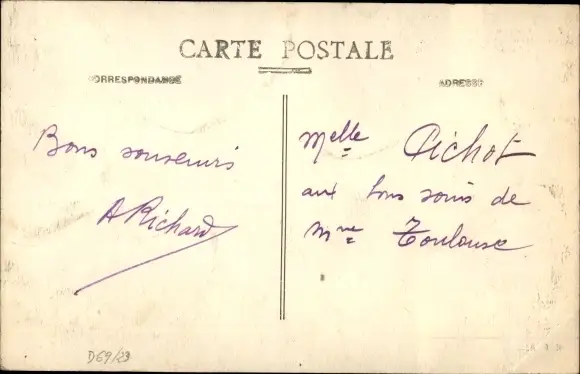 CARTE POSTALE
CORRESPONDANCE
ADRESSE
Bons souvenirs
A Richard
Melle Pichot
aux bons soins de
Mme Toulouse
D69/23